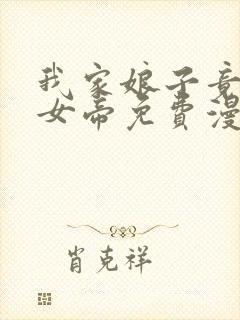 我家娘子竟
女帝免费漫
肖克祥